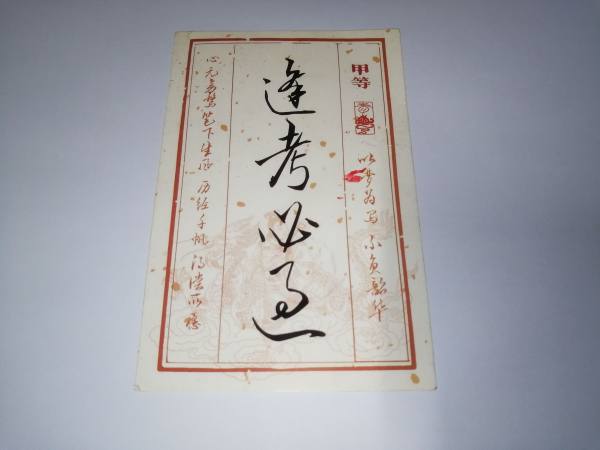 甲等
以梦为马 不负韶华
逢考必过
心无旁骛 笔下生花 历经千帆 得偿所愿